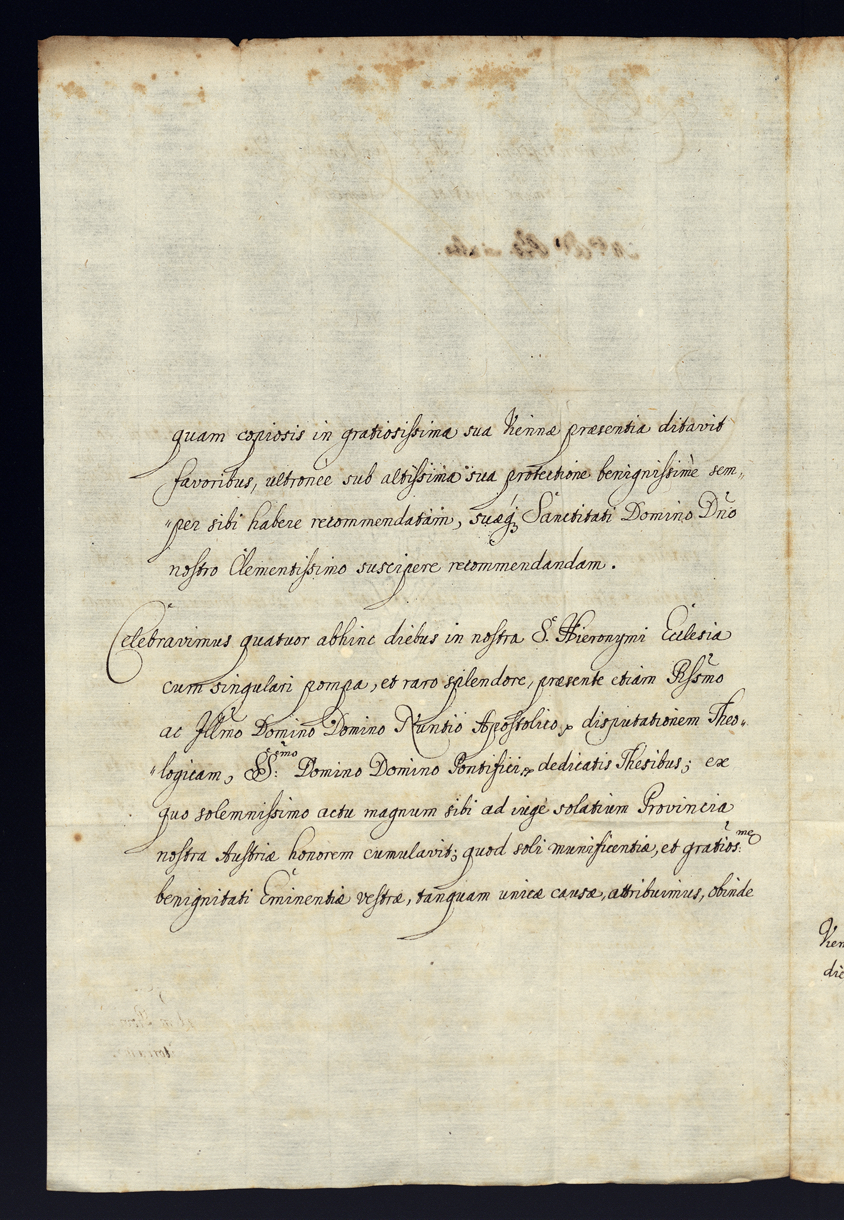 quam copiosis in gratiosissima sua Viennæ præsentia ditavit
favoribus, ultroneè sub altissima sua protectione benignissimè sem-
per sibi habere recommendatam, suæq; Sanctitati Domino Dño
nostro Clementissimo suscipere recommendandam.
Celebravimus quatuor abhinc diebus in nostra S. Hieronymi Ecclesia
cum singulari pompa, et raro splendore, præsente etiam Rssmo
ac Illmo Domino Domino Nuntio Apostolico, disputationem Theo-
logicam, SS:mo Domino Domino Pontifici, dedicatis Thesibus; ex
quo solemnissimo actu magnum sibi ad iugè solatium Provincia
nostra Austriæ honorem cumulavit; quod soli munificentiæ, et gratios:mæ
benignitati Eminentiæ vestræ, tanquam unicæ causæ, attribuimus, obinde